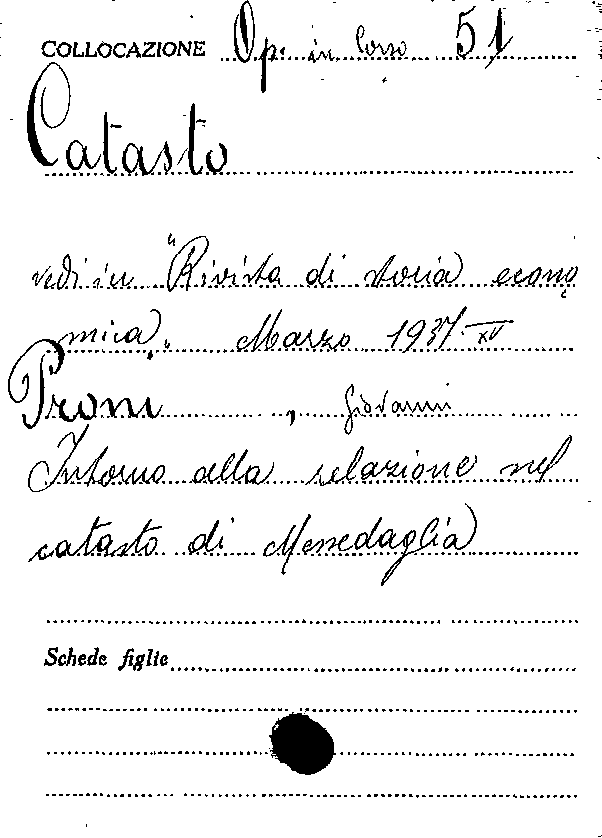 COLLOCAZIONE Op. in Corso 51
Catasto
vedi in "Rivista di storia econo
mica" Marzo 1937-XV
Proni, Giovanni
Intorno alla relazione nel
catasto di Messedaglia
Schede figlie